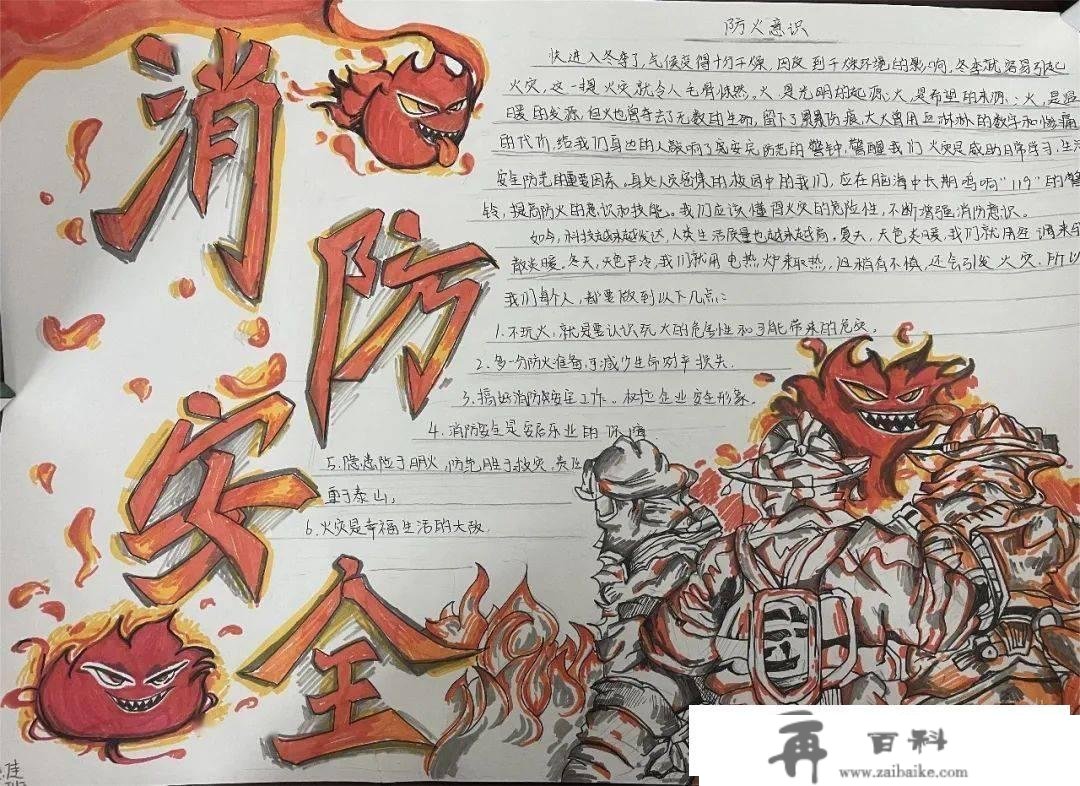 消防安全
防火意识
快进入冬季了,气候变得十分干燥,因受到干燥环境的影响,冬季就容易引起
火灾,这一提火灾就令人毛骨悚然。火是光明的起源;火是希望的来源;火,是温
暖的发源,但火也曾夺去了无数的生命,留下了累累伤痕,大火曾用血淋淋的数字和惨痛
的代价,给我们身边的人敲响了安全防范的警钟,警醒我们火灾是威胁日常学习、生活
安全防范的重要因素。身处人员密集的校园中的我们,应在脑海中长期鸣响"119"的警
铃,提高防火的意识和技能。我们应该懂得火灾的危险性,不断增强消防意识。
如今,科技越来越发达,人类生活质量也越来越高。夏天,天色炎暖,我们就用空调来
散炎暖。冬天,天色严冷,我们就用电热炉来取热,但稍有不慎,还会引发火灾.所以
我们每个人,都要做到以下几点:
1.不玩火,就是要认识玩火的危害性和可能带来的危灾。
2.多一分防火准备,可减少生命财产损失.
3.搞好消防安全工作。树立企业安全形象。
4.消防安全是安居乐业的保障
5.隐患险于明火,防范胜于救灾,责任
重于泰山;
6.火灾是幸福生活的大敌.
佳
再 百科
www.zaibaike.com